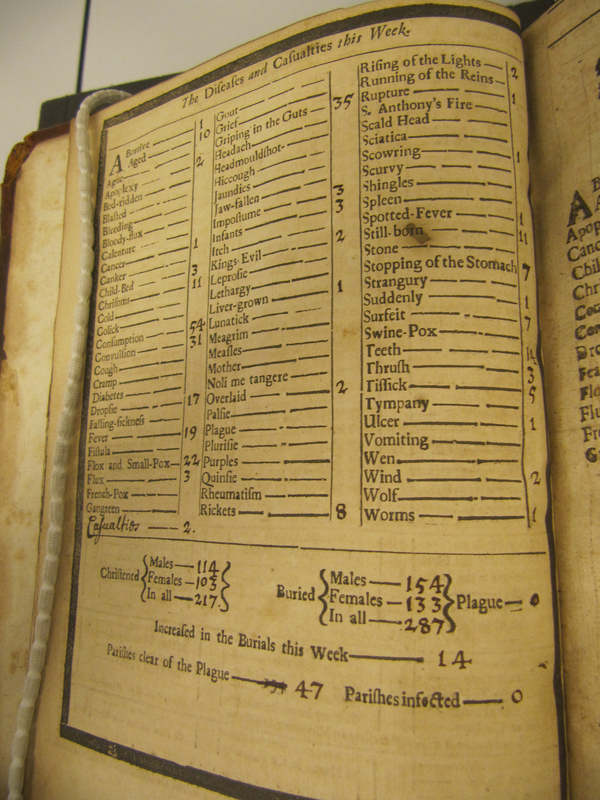 The Diſeaſes and Caſualties this Week.
Abortive 1
Aged 10
Ague
Apoplexy 2
Bed-ridden
Blaſted
Bleeding
Bloody-flux
Calenture
Cancer 1
Canker 3
Child-Bed 11
Chriſoms
Cold
Colick
Conſumption 54
Convulſion 31
Cough
Cramp
Diabetes
Dropſie 17
Falling-ſickneſs
Fever 19
Fiſtula
Flox and Small-Pox 22
Flux 3
French-Pox
Gangreen
Caſualties 2.
Gout
Grief
Griping in the Guts 35
Headach
Headmouldſhot
Hiccough
Jaundies 3
Jaw-fallen 3
Impoſtume
Infants 2
Itch
Kings-Evil
Leproſie
Lethargy 1
Liver-grown
Lunatick
Meagrim
Meaſles
Mother
Noli me tangere
Overlaid 2
Palſie
Plague
Pluriſie
Purples
Quinſie
Rheumatiſm
Rickets 8
Riſing of the Lights 2
Running of the Reins
Rupture 1
S. Anthony's Fire
Scald Head
Sciatica
Scowring 1
Scurvy
Shingles
Spleen
Spotted-Fever 1
Still-born 11
Stone
Stopping of the Stomach 7
Strangury
Suddenly 1
Surfeit 7
Swine-Pox
Teeth 14
Thruſh 3
Tiſſick 5
Tympany
Ulcer 1
Vomiting
Wen
Wind 2
Wolf
Worms 1
Chriſtened
Males 114
Females 103
In all 217.
Buried
Males 154
Females 133
In all 287
Plague 0
Increaſed in the Burials this Week 14
Pariſhes clear of the Plague 47 Pariſhes infected 0